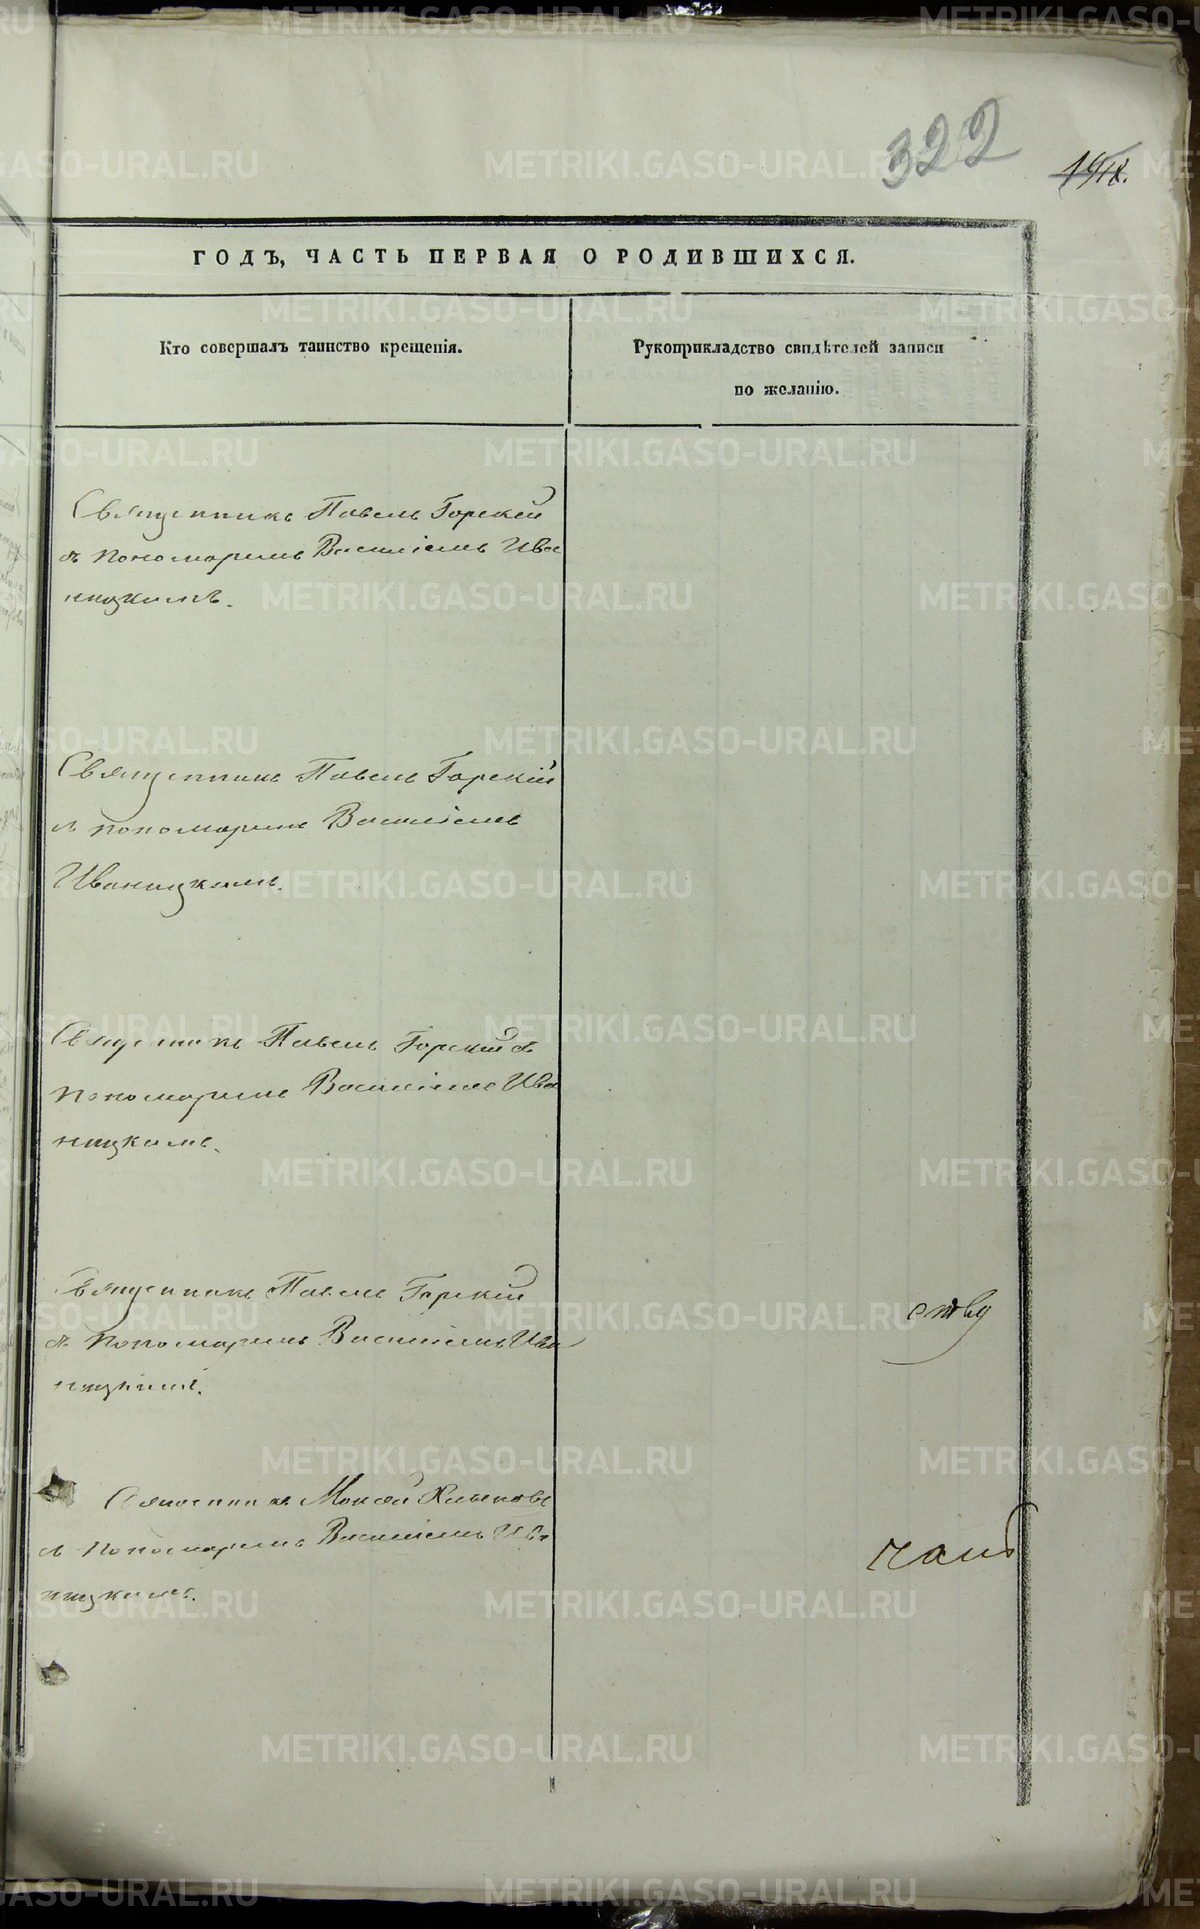 322
ГОДЪ, ЧАСТЬ ПЕРВАЯ О РОДИВШИХСЯ.
Кто совершалъ таинство крещенія.
Рукоприкладство свидѣтелей записи
по желанію.
Священникъ Павелъ Горскій
съ пономаремъ Василіемъ Ива
ницкимъ.
Священникъ Павелъ Горскій
съ пономаремъ Василіемъ
Иваницкимъ.
Священникъ Павелъ Горскій съ
пономаремъ Василіемъ Ива
ницкимъ.
Священникъ Павелъ Горскій
съ пономаремъ Василіемъ Ива
ницкимъ.
ству
Священникъ Моисей
съ пономаремъ Василіемъ Ива
ницкимъ.
METRIKI.GASO-URAL.RU